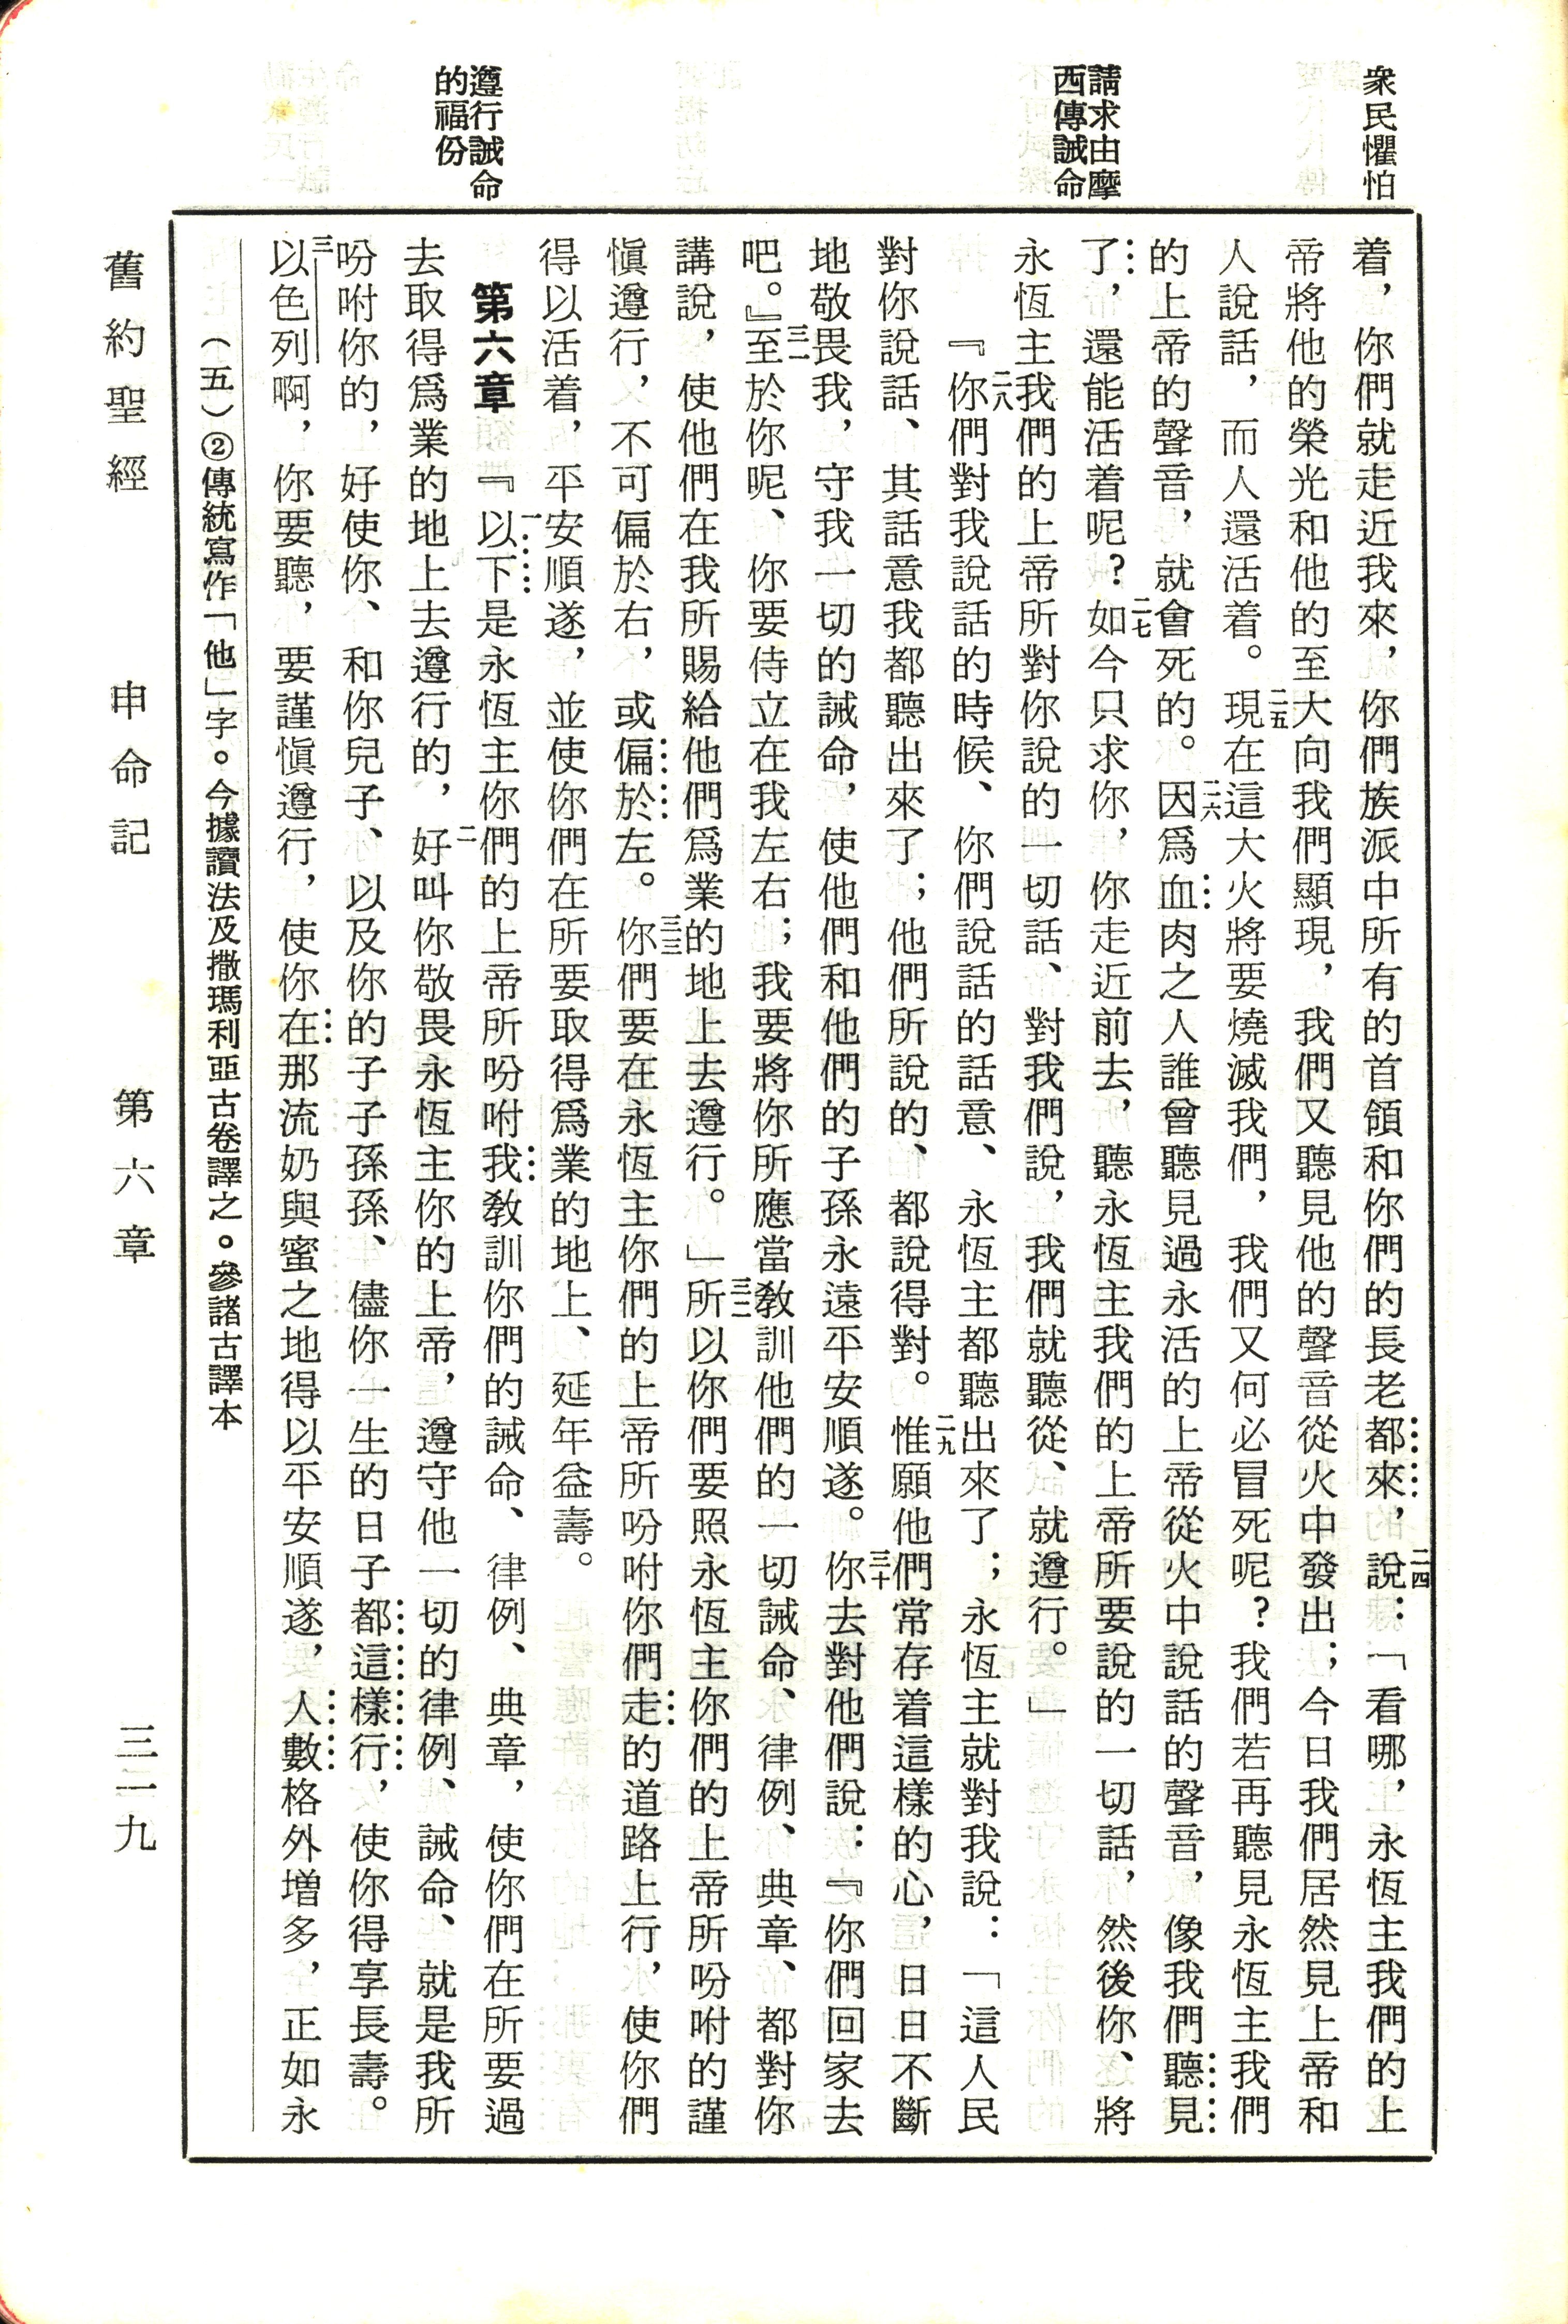 衆民懼怕
請求由摩
西傳誡命
遵行誡命
的福份
着，你們就走近我來，你們族派中所有的首領和你們的長老都來，二四說：「看哪，永恆主我們的上
帝將他的榮光和他的至大向我們顯現，我們又聽見他的聲音從火中發出；今日我們居然見上帝和
人說話，而人還活着。二五現在這大火將要燒滅我們，我們又何必冒死呢？我們若再聽見永恆主我們
的上帝的聲音，就會死的。二六因爲血肉之人誰曾聽見過永活的上帝從火中說話的聲音，像我們聽見
了，還能活着呢？二七如今只求你，你走近前去，聽永恆主我們的上帝所要說的一切話，然後你、將
永恆主我們的上帝所對你說的一切話、對我們說，我們就聽從、就遵行。」
『二八你們對我說話的時候、你們說話的話意、永恆主都聽出來了；永恆主就對我說：「這人民
對你說話、其話意我都聽出來了；他們所說的、都說得對。二九惟願他們常存着這樣的心，日日不斷
地敬畏我，守我一切的誡命，使他們和他們的子孫永遠平安順遂。三十你去對他們說：『你們回家去
吧。』三一至於你呢、你要侍立在我左右；我要將你所應當教訓他們的一切誡命、律例、典章、都對你
講說，使他們在我所賜給他們爲業的地上去遵行。」三二所以你們要照永恆主你們的上帝所吩咐的謹
愼遵行，不可偏於右，或偏於左。三三你們要在永恆主你們的上帝所吩咐你們走的道路上行，使你們
得以活着，平安順遂，並使你們在所要取得爲業的地上、延年益壽。
第六章　『一以下是永恆主你們的上帝所吩咐我教訓你們的誡命、律例、典章，使你們在所要過
去取得爲業的地上去遵行的，二好叫你敬畏永恆主你的上帝，遵守他一切的律例、誡命、就是我所
吩咐你的，好使你、和你兒子、以及你的子子孫孫、儘你一生的日子都這樣行，使你得享長壽。
三以色列啊，你要聽，要謹愼遵行，使你在那流奶與蜜之地得以平安順遂，人數格外增多，正如永
（五）②傳統寫作「他」字。今據讀法及撒瑪利亞古卷譯之。參諸古譯本
舊約聖經　申命記　第六章　三二九